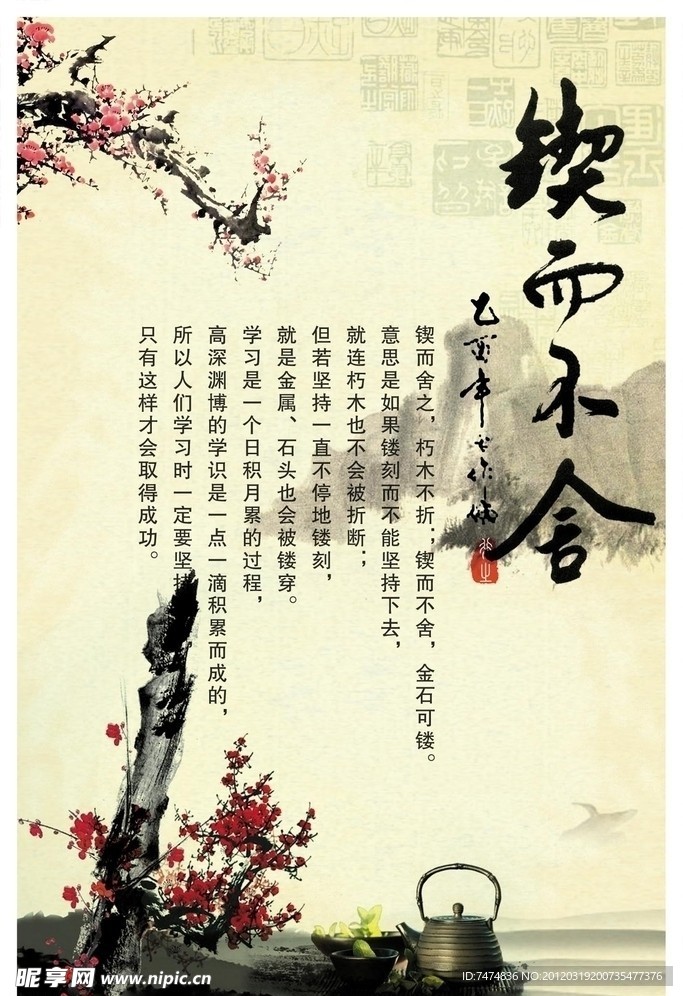 锲而不舍
锲而舍之，朽木不折；锲而不舍，金石可镂。
意思是如果镂刻而不能坚持下去，
就连朽木也不会被折断；
但若坚持一直不停地镂刻，
就是金属、石头也会被镂穿。
学习是一个日积月累的过程，
高深渊博的学识是一点一滴积累而成的，
所以人们学习时一定要坚持
只有这样才会取得成功。
昵享网 www.nipic.cn
ID:7474836 NO.20120319200735477376